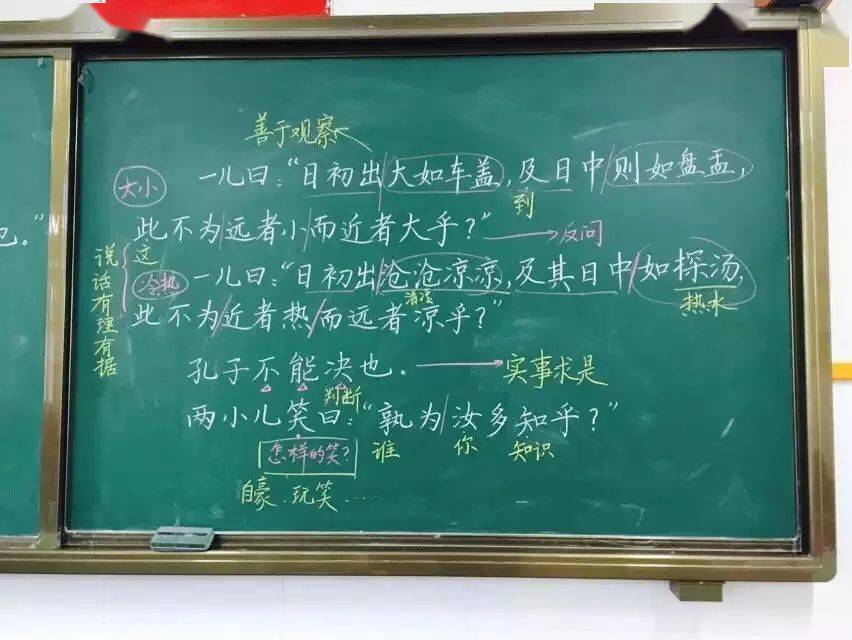 善于观察
大小 一儿曰：“日初出/大如车盖，及日中/则如盘盂，
到
也。” 此不为/远者小/而近者大乎？” → 反问
这
说话有理有据
冷热 一儿曰：“日初出/沧沧凉凉，及其日中/如探汤，
热水
此不为/近者热/而远者凉乎？”
孔子不能决也. → 实事求是
判断
两小儿笑曰：“孰为/汝多知乎？”
怎样的笑？ 谁 你 知识
自豪.玩笑……